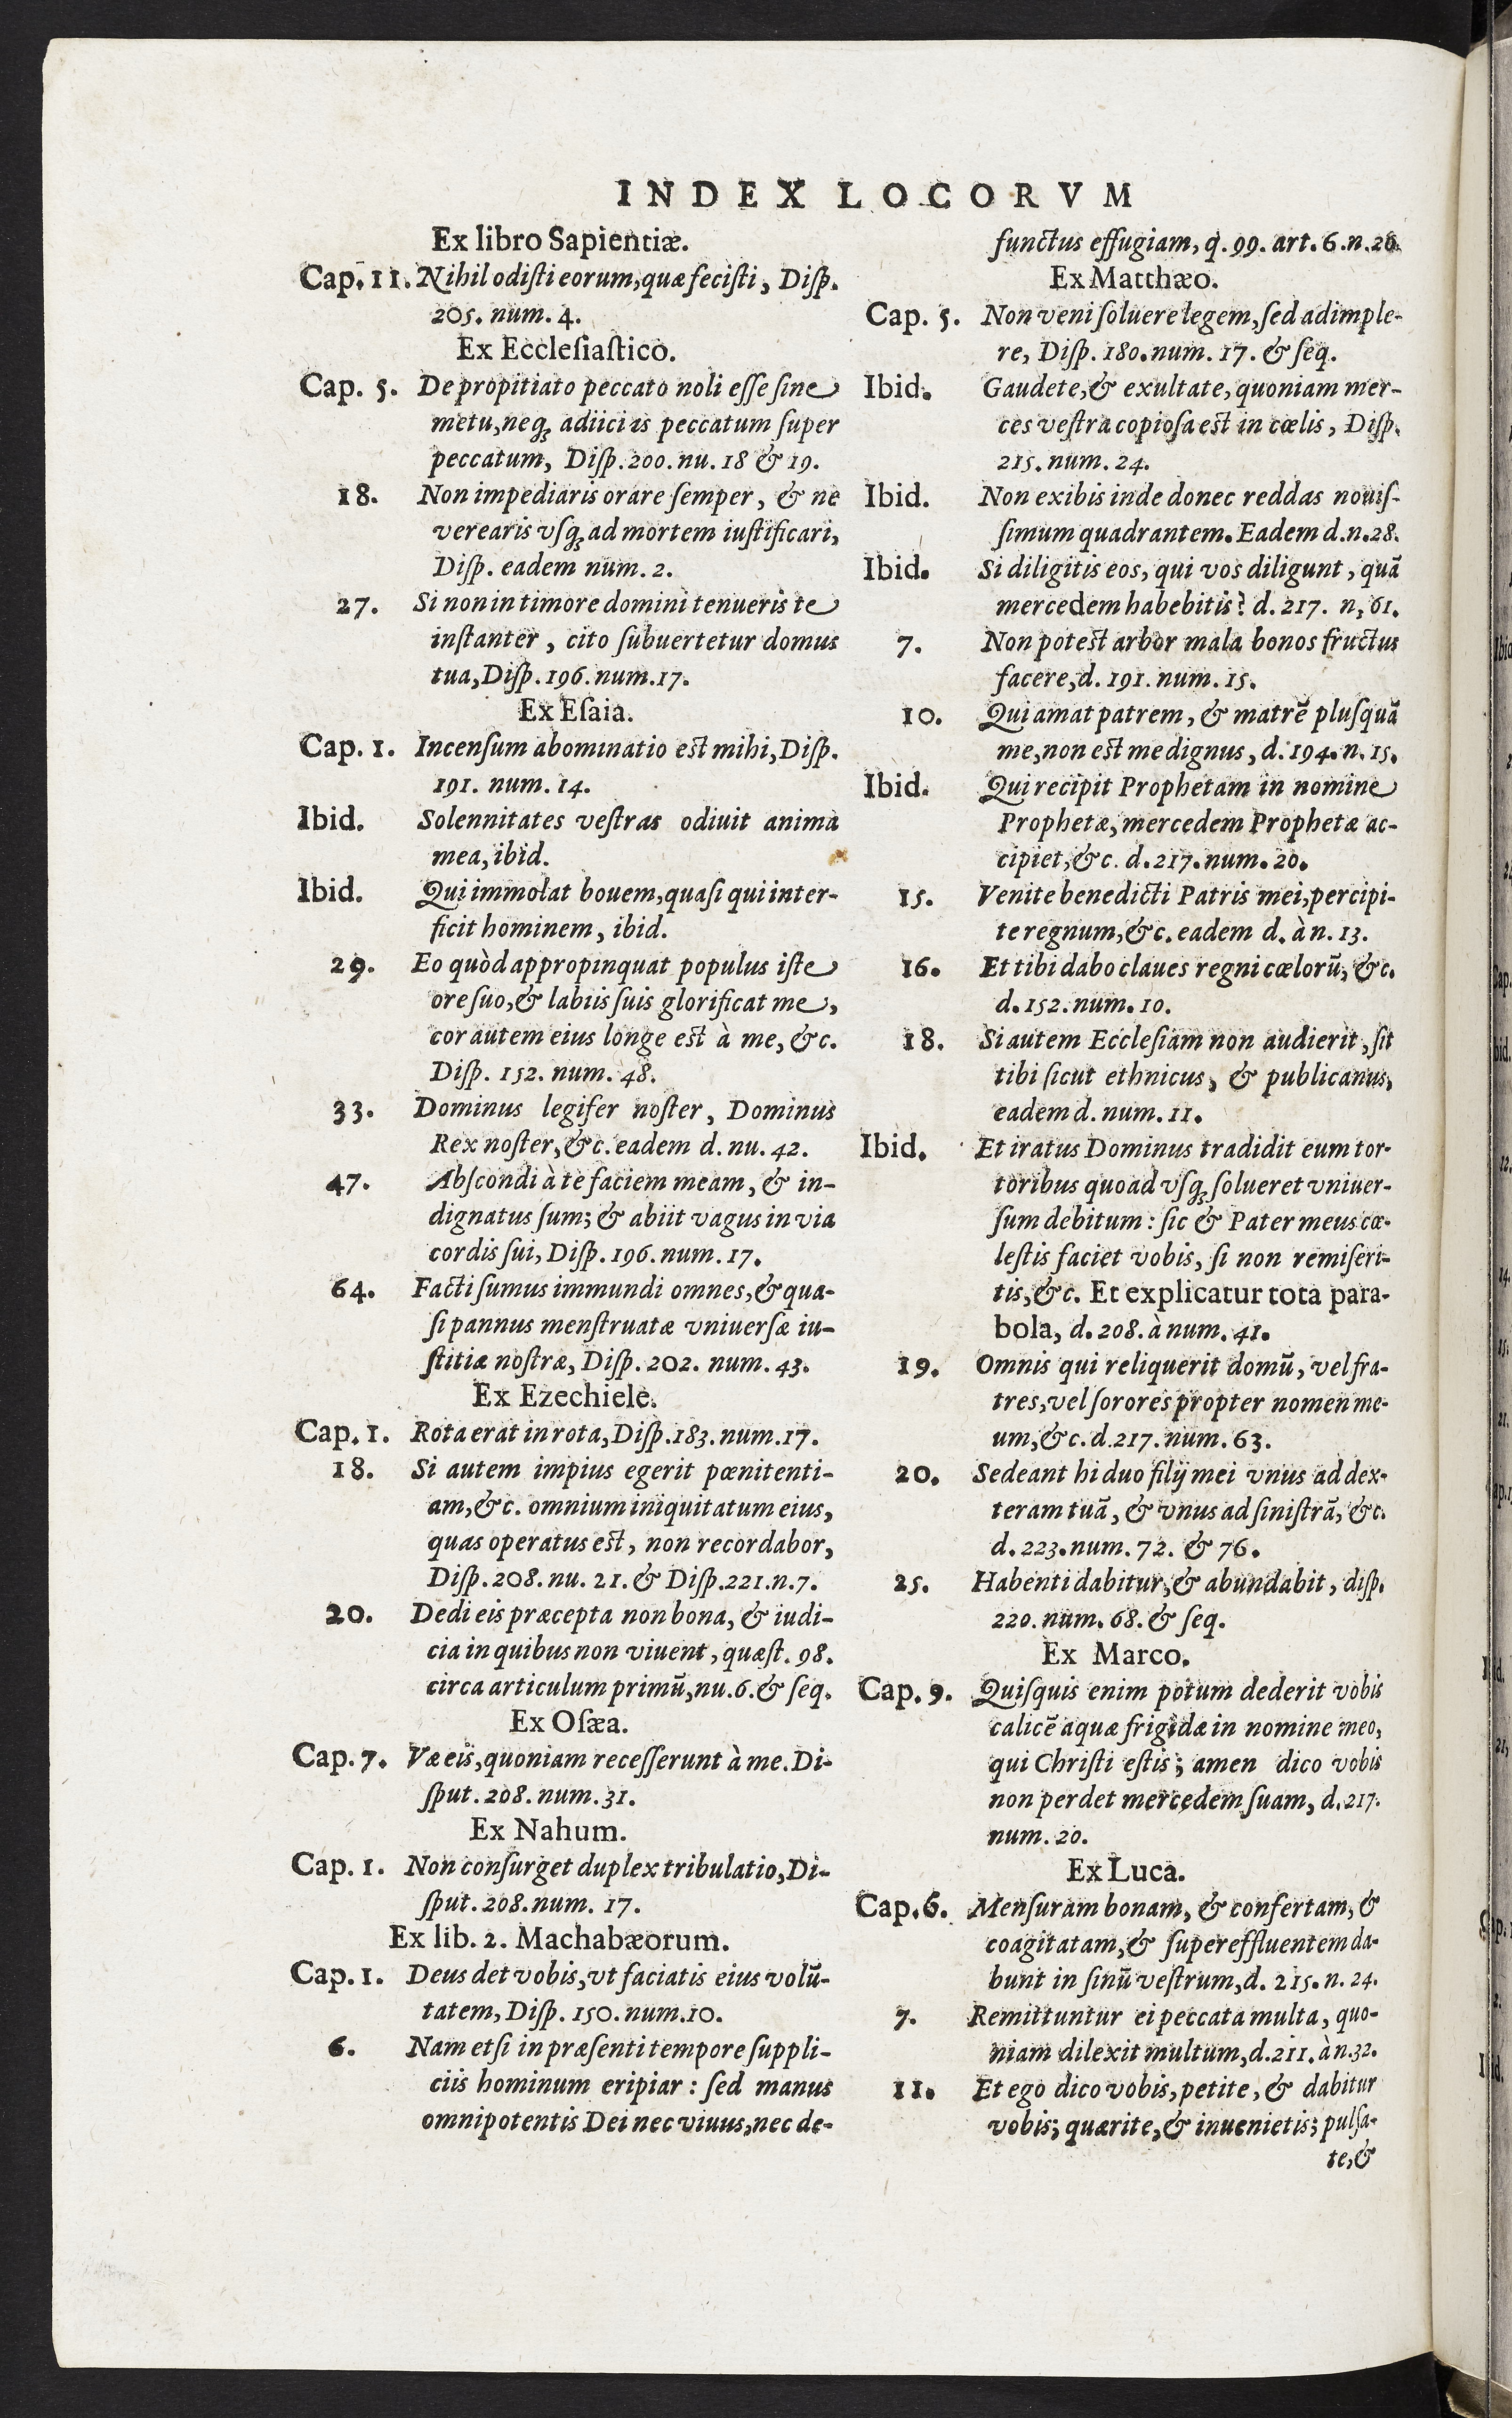 INDEX LOCORVM
Ex libro Sapientiæ.
Cap. 11. Nihil odisti eorum, quæ fecisti, Disp.
205. num. 4.
Ex Ecclesiastico.
Cap. 5. De propitiato peccato noli esse sine
metu, neq; adiicias peccatum super
peccatum, Disp. 200. nu. 18 & 19.
18. Non impediaris orare semper, & ne
verearis vsq; ad mortem iustificari,
Disp. eadem num. 2.
27. Si non in timore domini tenueris te
instanter, cito subuertetur domus
tua, Disp. 196. num. 17.
Ex Esaia.
Cap. 1. Incensum abominatio est mihi, Disp.
191. num. 14.
Ibid. Solennitates vestras odiuit anima
mea, ibid.
Ibid. Qui immolat bouem, quasi qui inter-
ficit hominem, ibid.
29. Eo quòd appropinquat populus iste
ore suo, & labiis suis glorificat me,
cor autem eius longe est à me, &c.
Disp. 152. num. 48.
33. Dominus legifer noster, Dominus
Rex noster, &c. eadem d. nu. 42.
47. Abscondi à te faciem meam, & in-
dignatus sum; & abiit vagus in via
cordis sui, Disp. 196. num. 17.
64. Facti sumus immundi omnes, & qua-
si pannus menstruatæ vniuersæ iu-
stitiæ nostræ, Disp. 202. num. 43.
Ex Ezechiele.
Cap. 1. Rota erat in rota, Disp. 183. num. 17.
18. Si autem impius egerit pœnitenti-
am, &c. omnium iniquitatum eius,
quas operatus est, non recordabor,
Disp. 208. nu. 21. & Disp. 221. n. 7.
20. Dedi eis præcepta non bona, & iudi-
cia in quibus non viuent, quæst. 98.
circa articulum primū, nu. 6. & seq.
Ex Osæa.
Cap. 7. Væ eis, quoniam recesserunt à me. Di-
sput. 208. num. 31.
Ex Nahum.
Cap. 1. Non consurget duplex tribulatio, Di-
sput. 208. num. 17.
Ex lib. 2. Machabæorum.
Cap. 1. Deus det vobis, vt faciatis eius volū-
tatem, Disp. 150. num. 10.
6. Nam etsi in præsenti tempore suppli-
ciis hominum eripiar: sed manus
omnipotentis Dei nec viuus, nec de-
functus effugiam, q. 99. art. 6. n. 26.
Ex Matthæo.
Cap. 5. Non veni soluere legem, sed adimple-
re, Disp. 180. num. 17. & seq.
Ibid. Gaudete, & exultate, quoniam mer-
ces vestra copiosa est in cœlis, Disp.
215. num. 24.
Ibid. Non exibis inde donec reddas nouis-
simum quadrantem. Eadem d. n. 28.
Ibid. Si diligitis eos, qui vos diligunt, quā
mercedem habebitis? d. 217. n, 61.
7. Non potest arbor mala bonos fructus
facere, d. 191. num. 15.
10. Qui amat patrem, & matrē plusquā
me, non est me dignus, d. 194. n. 15.
Ibid. Qui recipit Prophetam in nomine
Prophetæ, mercedem Prophetæ ac-
cipiet, &c. d. 217. num. 20.
15. Venite benedicti Patris mei, percipi-
te regnum, &c. eadem d. à n. 13.
16. Et tibi dabo claues regni cœlorū, &c.
d. 152. num. 10.
18. Si autem Ecclesiam non audierit, sit
tibi sicut ethnicus, & publicanus,
eadem d. num. 11.
Ibid. Et iratus Dominus tradidit eum tor-
toribus quoad vsq; solueret vniuer-
sum debitum: sic & Pater meus cœ-
lestis faciet vobis, si non remiseri-
tis, &c. Et explicatur tota para-
bola, d. 208. à num. 41.
19. Omnis qui reliquerit domū, vel fra-
tres, vel sorores propter nomen me-
um, &c. d. 217. num. 63.
20. Sedeant hi duo filij mei vnus ad dex-
teram tuā, & vnus ad sinistrā, &c.
d. 223. num. 72. & 76.
25. Habenti dabitur, & abundabit, disp.
220. num. 68. & seq.
Ex Marco.
Cap. 9. Quisquis enim potum dederit vobis
calicē aquæ frigidæ in nomine meo,
qui Christi estis; amen dico vobis
non perdet mercedem suam, d. 217.
num. 20.
Ex Luca.
Cap. 6. Mensuram bonam, & confertam, &
coagitatam, & supereffluentem da-
bunt in sinū vestrum, d. 215. n. 24.
7. Remittuntur ei peccata multa, quo-
niam dilexit multum, d. 211. à n. 32.
11. Et ego dico vobis, petite, & dabitur
vobis; quærite, & inuenietis; pulsa-
te, &